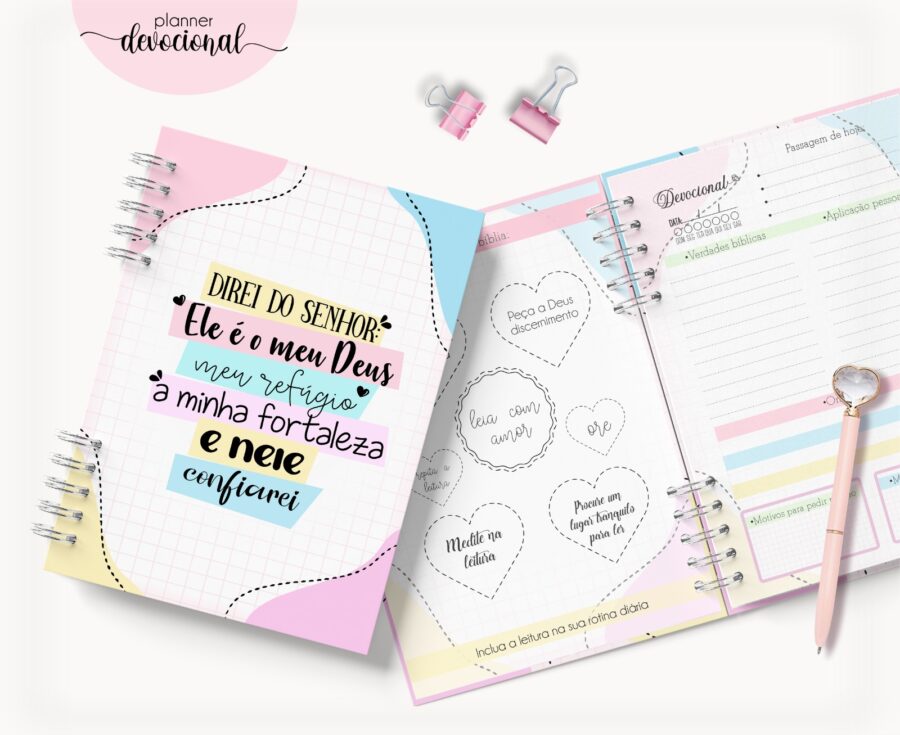 planner
devocional
DIREI DO SENHOR:
Ele é o meu Deus
meu refúgio
a minha fortaleza
e nele
confiarei
bíblia:
Peça a Deus
discernimento
leia com
amor
ore
leitura
Medite na
leitura
Procure um
lugar tranquilo
para ler
Inclua a leitura na sua rotina diária
Devocional
DATA:
DOM SEG TER QUA QUI SEX SÁB
Passagem de hoje
•Verdades bíblicas
•Aplicação pesso
•Motivos para pedir